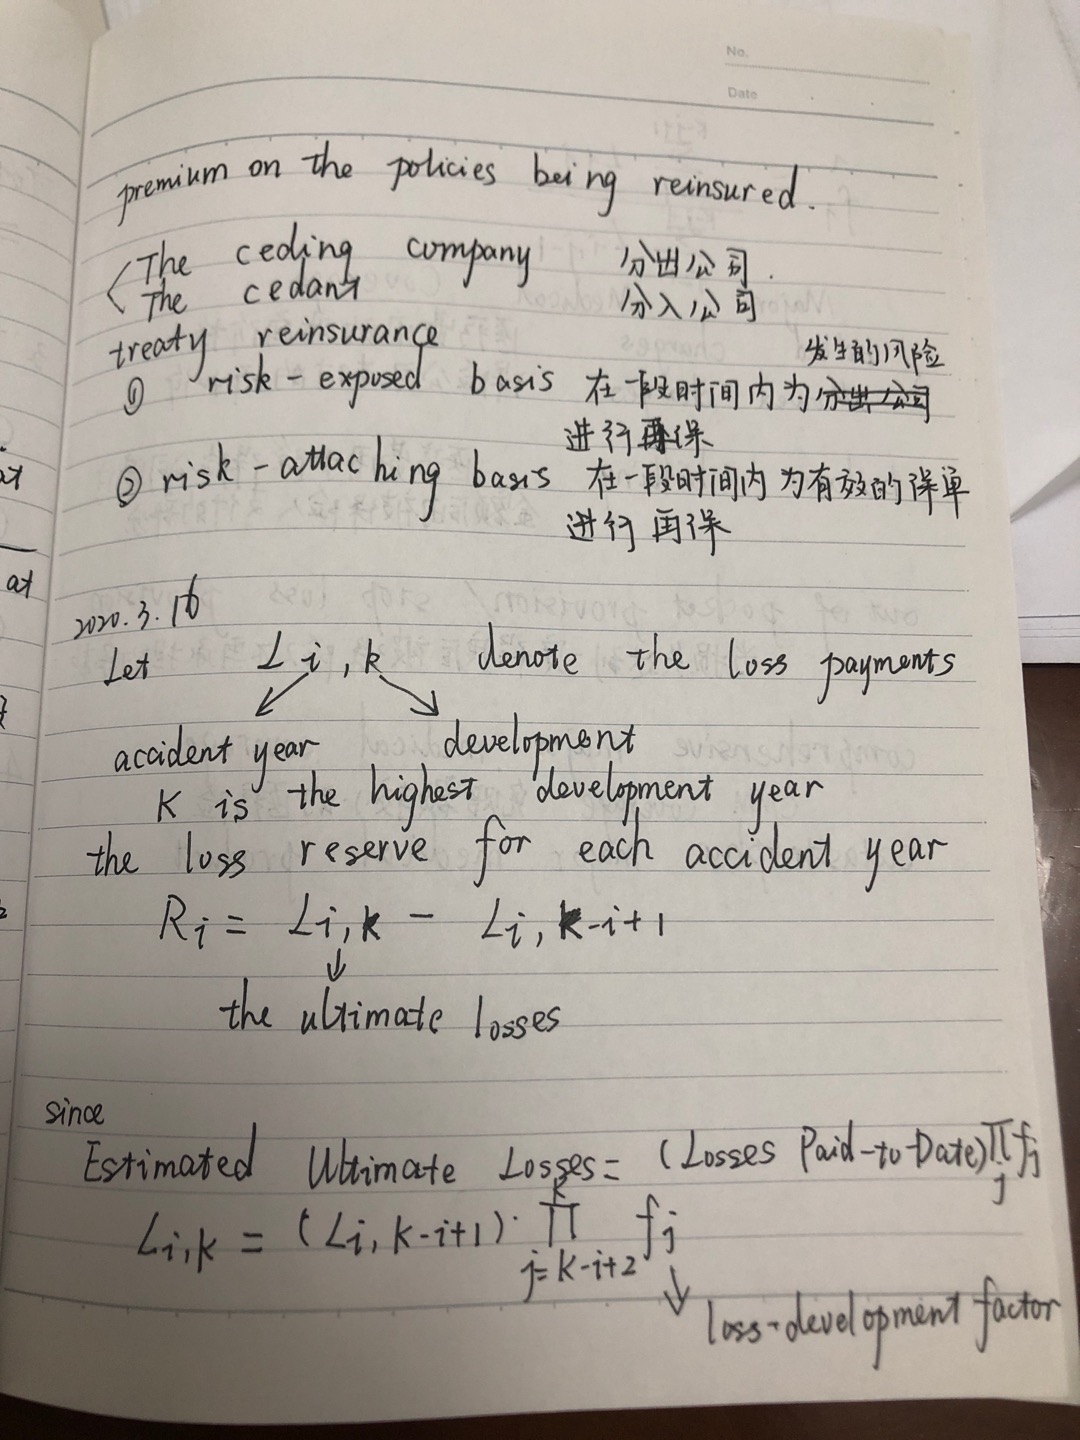 No.
Date
premium on the policies being reinsured.
The ceding company 分出公司.
The cedant 分入公司
treaty reinsurance
发生的风险
① risk-exposed basis 在一段时间内为分出公司
进行再保
② risk-attaching basis 在一段时间内为有效的保单
进行再保
2020.3.16
Let Li,k denote the loss payments
accident year development
K is the highest development year
the loss reserve for each accident year
Ri = Li,k - Li,k-i+1
the ultimate losses
since
Estimated Ultimate Losses = (Losses Paid-to-Date) ∏ fj
j
K
Li,k = (Li,k-i+1) · ∏ fj
j=k-i+2
loss-development factor
at
at